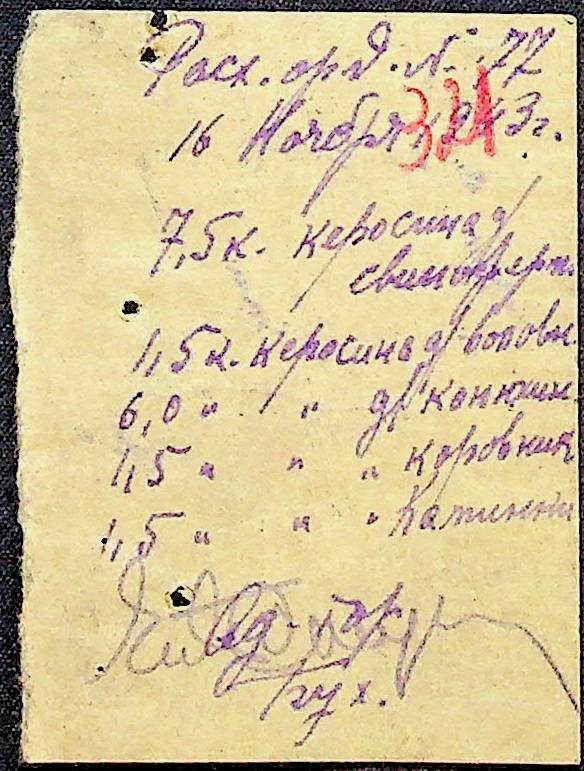 Расх. орд. № 77
16 Ноября 1943 г.
321
7,5 к. керосина д/
свиноферм.
1,5 к. керосина д/воловн.
6,0 " " д/ конюшн
1,5 " " " коровник
1,5 " " "